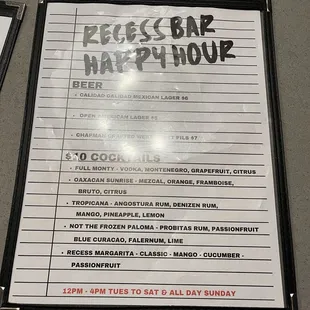 RECESS BAR
HAPPY HOUR
BEER
• CALIDAD CALIDAD MEXICAN LAGER $6
• OPEN MEXICAN LAGER
• CHAPMAN PILS $7
$10 COCKTAILS
• FULL MONTY - VODKA, MONTENEGRO, GRAPEFRUIT, CITRUS
• OAXACAN SUNRISE - MEZCAL, ORANGE, FRAMBOISE,
BRUTO, CITRUS
• TROPICANA - ANGOSTURA RUM, DENIZEN RUM,
MANGO, PINEAPPLE, LEMON
• NOT THE FROZEN PALOMA - PROBITAS RUM, PASSIONFRUIT
BLUE CURACAO, FALERNUM, LIME
• RECESS MARGARITA - CLASSIC - MANGO - CUCUMBER -
PASSIONFRUIT
12PM - 4PM TUES TO SAT & ALL DAY SUNDAY